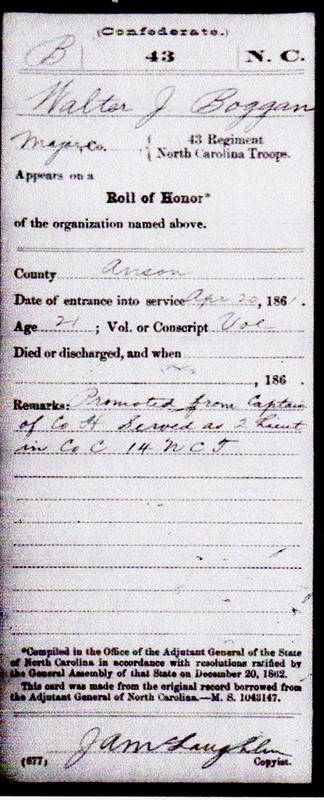 (Confederate.)
B | 43 | N. C.
Walter J Boggan
Major, Co. { 43 Regiment
North Carolina Troops.
Appears on a
Roll of Honor*
of the organization named above.
County Anson
Date of entrance into service Apr 20, 1861.
Age 21 ; Vol. or Conscript Vol
Died or discharged, and when
, 186 .
Remarks: Promoted from Captain
of Co H Served as 2 Lieut
in Co C 14 N C T
*Compiled in the Office of the Adjutant General of the State
of North Carolina in accordance with resolutions ratified by
the General Assembly of that State on December 20, 1862.
This card was made from the original record borrowed from
the Adjutant General of North Carolina.—M. S. 1043147.
J A McLaughlin
(677) Copyist.